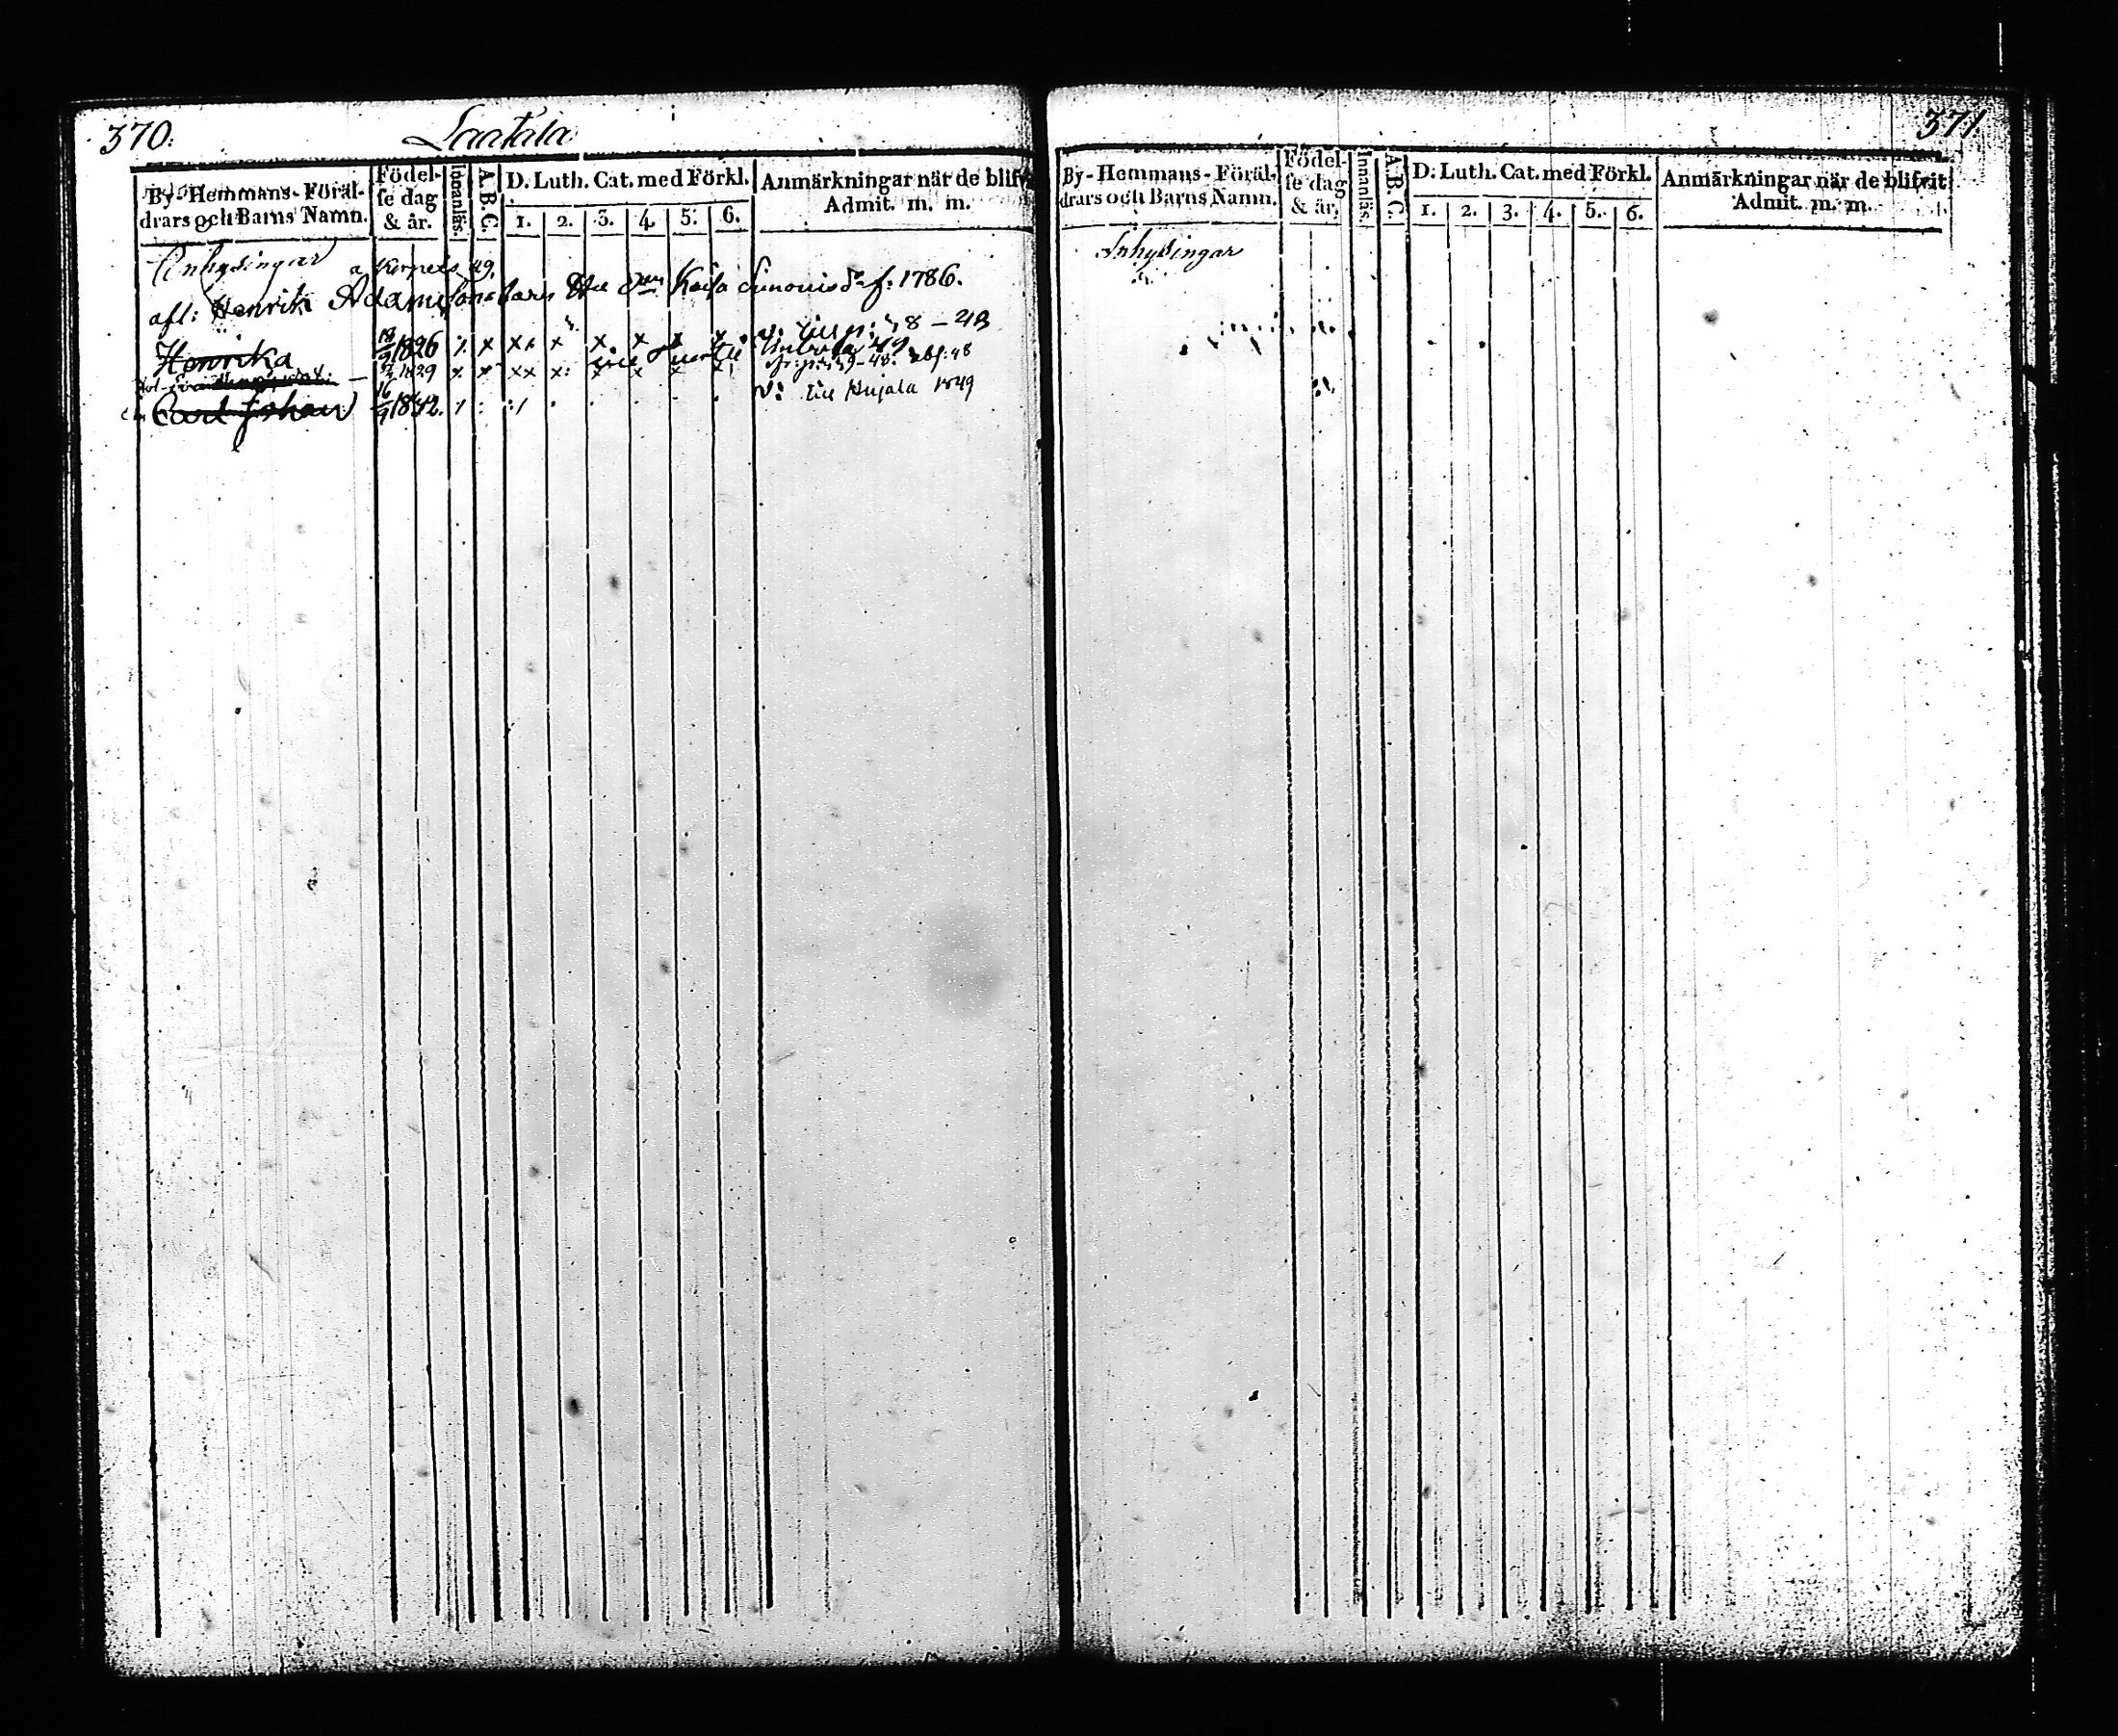 370. Laatala
By-Hemmans-Föräl-
drars och Barns Namn.
Födel-
se dag
& år.
Innanläs.
A.B.C.
D. Luth. Cat. med Förkl.
1. 2. 3. 4. 5. 6.
Anmärkningar när de blifvit
Admit. m. m.
Inhysingar
afl: Henrik Adamsson Kaisa Simonis f. 1786.
Henrika 1826 x x x x x x x
1829 x x x x x x x x
Carl Johan 1842. till Kujala 1849
371
By-Hemmans-Föräl-
drars och Barns Namn.
Födel-
se dag
& år.
Innanläs.
A.B.C.
D. Luth. Cat. med Förkl.
1. 2. 3. 4. 5. 6.
Anmärkningar när de blifvit
Admit. m. m.
Inhysingar